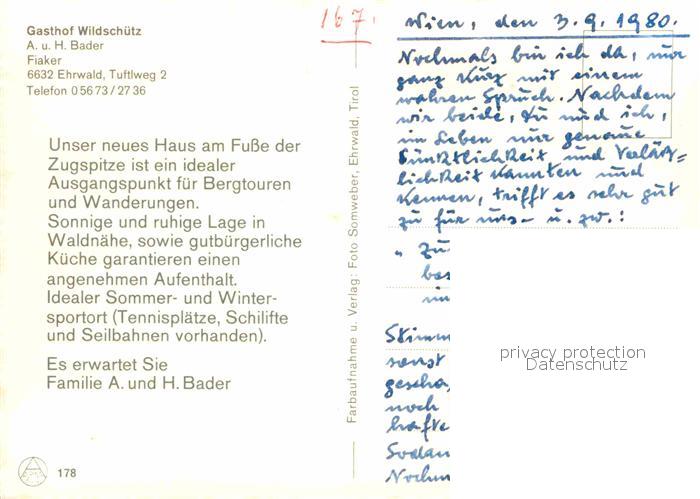 Gasthof Wildschütz
A. u. H. Bader
Fiaker
6632 Ehrwald, Tuftlweg 2
Telefon 0 56 73 / 27 36
Unser neues Haus am Fuße der
Zugspitze ist ein idealer
Ausgangspunkt für Bergtouren
und Wanderungen.
Sonnige und ruhige Lage in
Waldnähe, sowie gutbürgerliche
Küche garantieren einen
angenehmen Aufenthalt.
Idealer Sommer- und Winter-
sportort (Tennisplätze, Schilifte
und Seilbahnen vorhanden).
Es erwartet Sie
Familie A. und H. Bader
178
Farbaufnahme u. Verlag: Foto Somweber, Ehrwald, Tirol
167.
Wien, den 3.9.1980.
Nochmals bin ich da, nur
ganz kurz mit einem
wahren Spruch. Nachdem
wir beide, Du und ich,
im Leben nur genaue
Pünktlichkeit und Verläß=
lichkeit kannten und
kennen, trifft es sehr gut
zu für uns - u. zw.:
" Zu
bes
im
Stimm
sonst
gescha
noch
hafte
Sodan
Nochm
privacy protection
Datenschutz